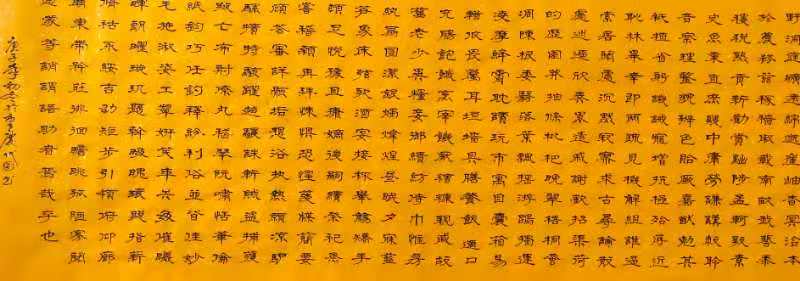 野洞庭曠遠綿邈巖岫杳冥治本
於農務茲稼穡俶載南畝我藝黍
稷稅熟貢新勸賞黜陟孟軻敦素
史魚秉直庶幾中庸勞謙謹敕聆
音察理鑑貌辨色貽厥嘉猷勉其
祗植省躬譏誡寵增抗極殆辱近
恥林皋幸即兩疏見機解組誰逼
索居閒處沉默寂寥求古尋論散
慮逍遙欣奏累遣慼謝歡招渠荷
的歷園莽抽條枇杷晚翠梧桐蚤
凋陳根委翳落葉飄颻遊鵾獨運
凌摩絳霄耽讀翫市寓目囊箱易
輶攸畏屬耳垣牆具膳餐飯適口
充腸飽飫烹宰飢厭糟糠親戚故
舊老少異糧妾御績紡侍巾帷房
紈扇圓潔銀燭煒煌晝眠夕寐藍
筍象床弦歌酒讌接杯舉觴矯手
頓足悅豫且康嫡後嗣續祭祀烝
嘗稽顙再拜悚懼恐惶箋牒簡要
顧答審詳骸垢想浴執熱願涼驢
騾犢特駭躍超驤誅斬賊盜捕獲
叛亡布射僚丸嵇琴阮嘯恬筆倫
紙鈞巧任釣釋紛利俗並皆佳妙
毛施淑姿工顰妍笑年矢每催曦
暉朗曜璇璣懸斡晦魄環照指薪
修祜永綏吉劭矩步引領俯仰廊
廟束帶矜莊徘徊瞻眺孤陋寡聞
愚蒙等誚謂語助者焉哉乎也
庚子年初冬於